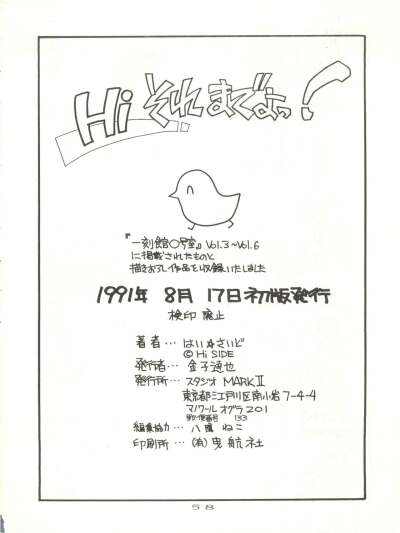 Hi それまでよっ!
『一刻館〇号室』Vol.3~Vol.6
に掲載されたものと
描きおろし作品を収録いたしました
1991年 8月 17日初版発行
検印 廃止
著者…はい☆さいど
©Hi SIDE
発行者…金子達也
発行所…スタジオ MARKⅡ
東京都江戸川区南小岩7-4-4
マノワールオグラ201
郵便番号 133
編集協力…八鷹ねこ
印刷所…(有)曳航社
58